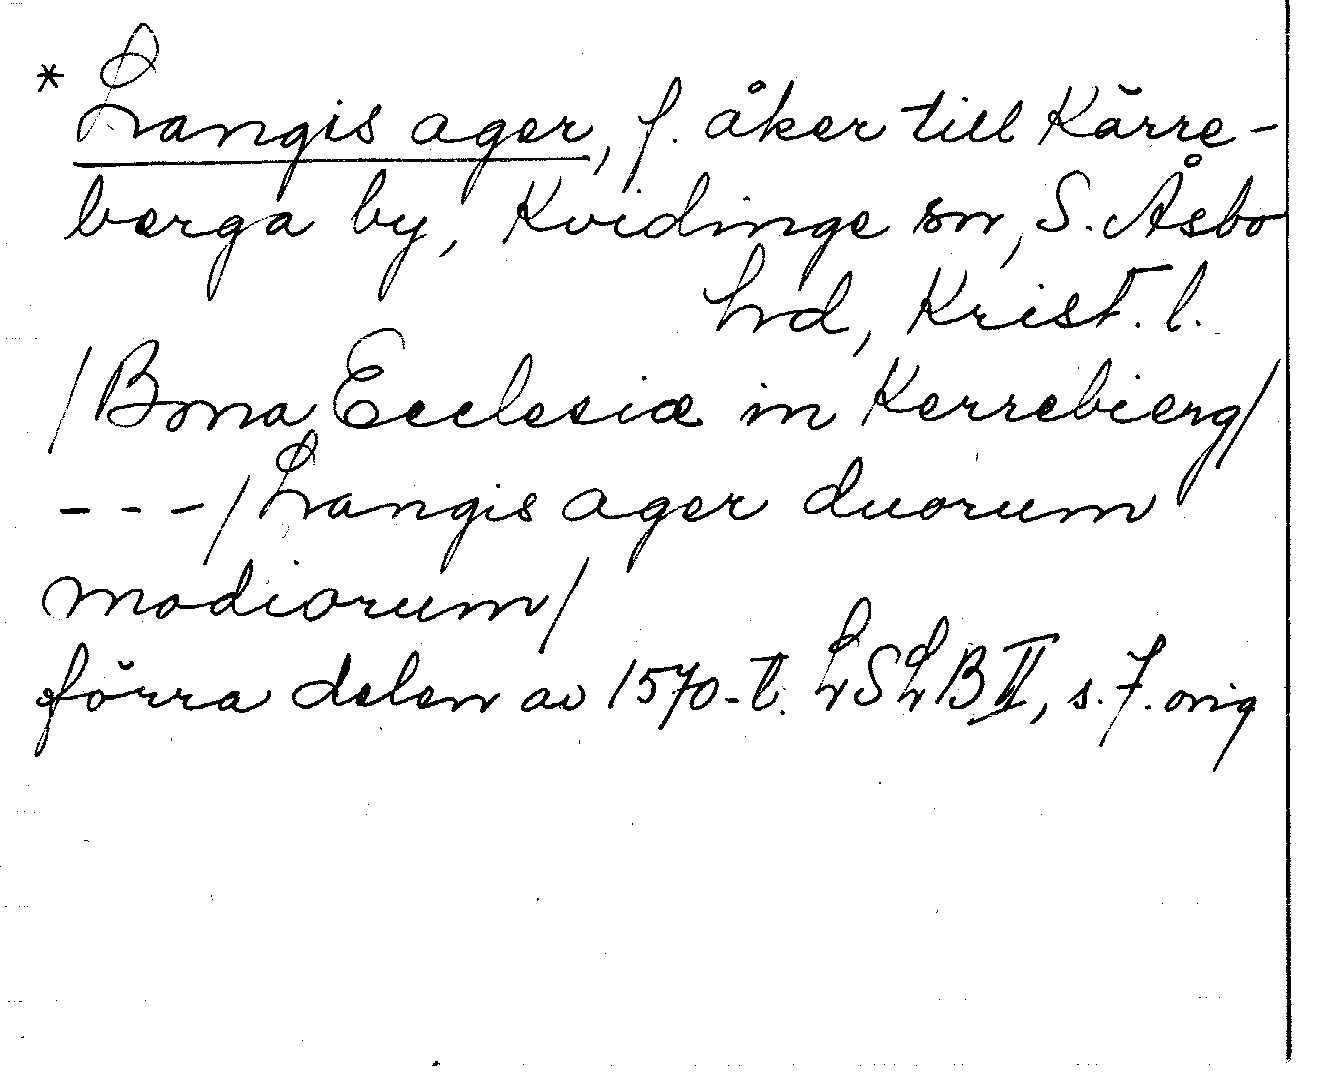 * Langis ager, f. åker till Kärre-
berga by, Kvidinge sn, S. Åsbo
hd, Krist. l.
/Bona Ecclesiæ in Kerrebierg/
---/Langis ager duorum
modiorum/
förra delen av 1570-t. LSLB II, s. 7. orig